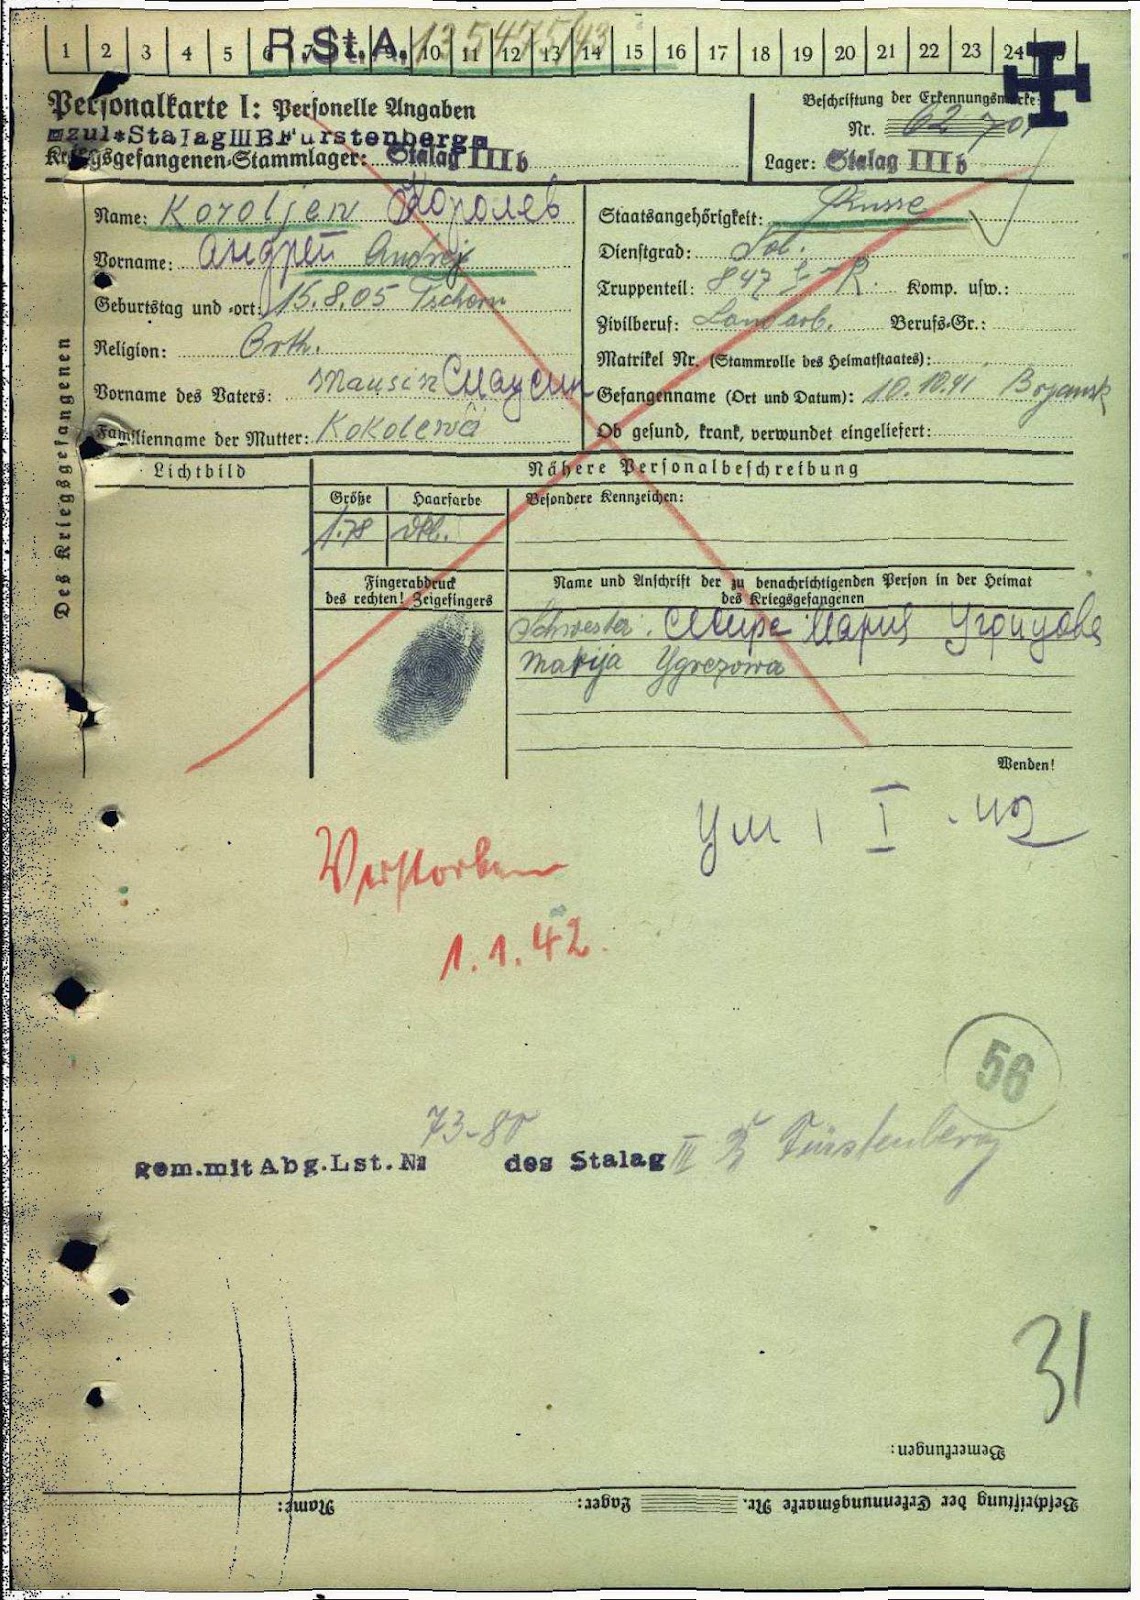 1 2 3 4 5 6 7 8 9 10 11 12 13 14 15 16 17 18 19 20 21 22 23 24 25
R.St.A.
Personalkarte I: Personelle Angaben
Beschriftung der Erkennungsmarke:
zul*Stalag III B Fürstenberg
Nr. 62 701
Kriegsgefangenen-Stammlager: Stalag III b
Lager: Stalag III b
Des Kriegsgefangenen
Name: Koroljew Королев
Staatsangehörigkeit: Russe
Vorname: Андрей Andrej
Dienstgrad: Sol.
Truppenteil: 847 - R. Komp. usw.:
Geburtstag und -ort: 15.8.05 Tschern
Zivilberuf: Landarb. Berufs-Gr.:
Religion: Orth.
Matrikel Nr. (Stammrolle des Heimatstaates):
Vorname des Vaters:
Gefangennahme (Ort und Datum): 10.10.41
Familienname der Mutter:
Ob gesund, krank, verwundet eingeliefert:
Lichtbild
Nähere Personalbeschreibung
Größe Haarfarbe
Besondere Kennzeichen:
1.78 dkl.
Fingerabdruck
des rechten! Zeigefingers
Name und Anschrift der zu benachrichtigenden Person in der Heimat
des Kriegsgefangenen
Schwester: Мария
Marija Ygrezowa
Wenden!
Ум 1 I - 42
Verstorben
1.1.42.
56
73-80
gem.mit Abg.Lst.No des Stalag III B Fürstenberg
31
Bemerkungen:
Beschriftung der Erkennungsmarke Nr. Lager: Name: